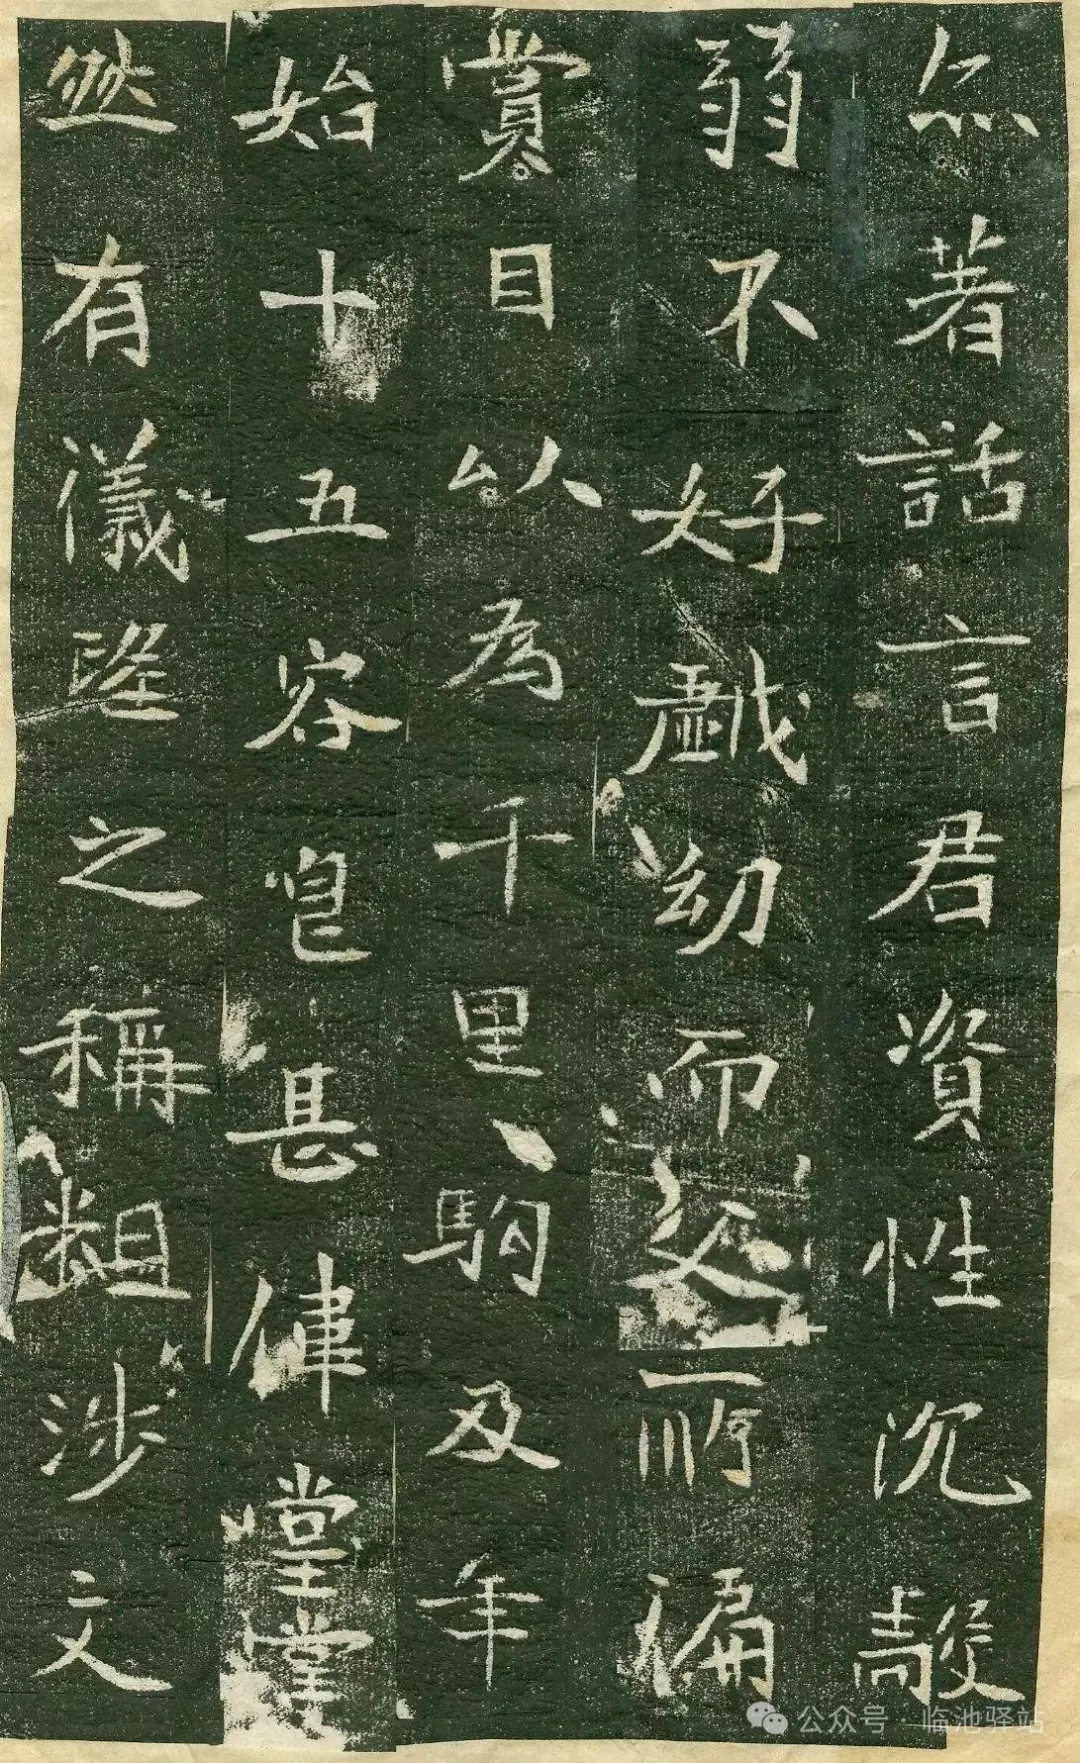 亦著話言君資性沉毅
弱不好戲幼而父所偏
賞目以為千里駒及年
始十五容皃甚偉堂堂
然有儀隆之稱粗涉文
公众号·临池驿站